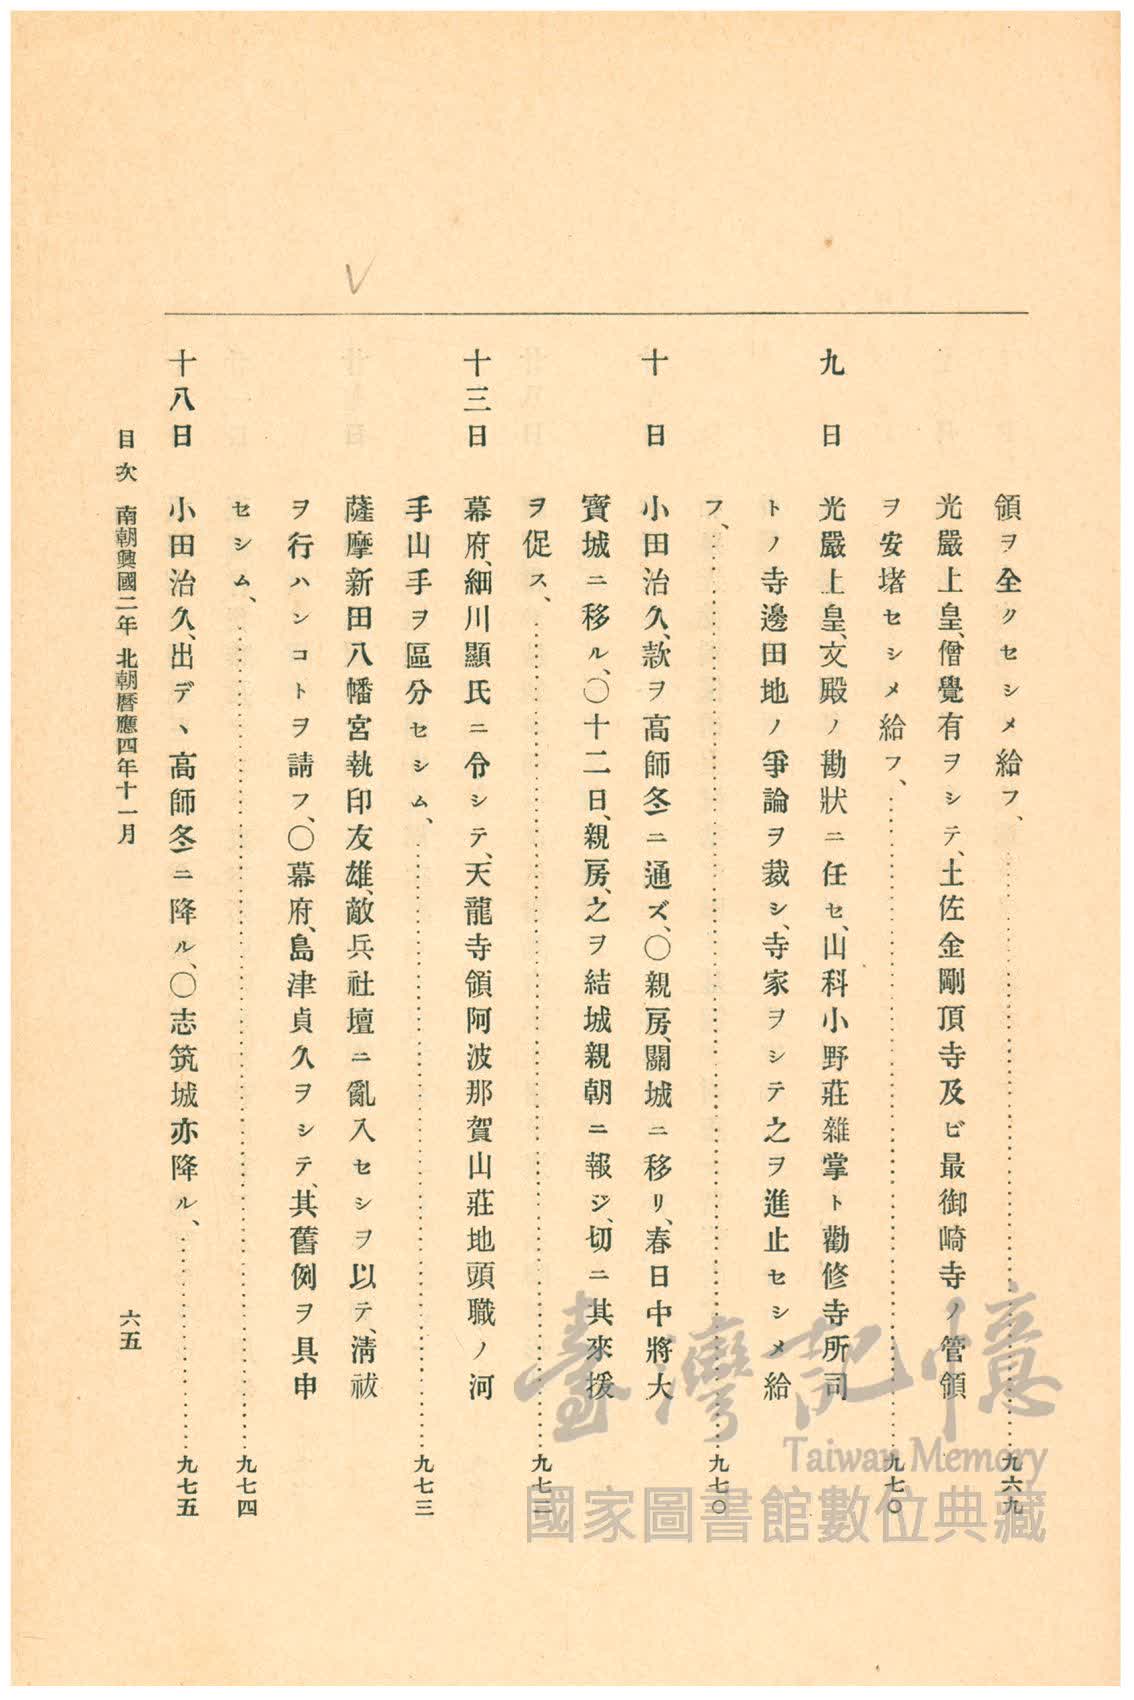 領ヲ全クセシメ給フ、……九六九
光嚴上皇、僧覺有ヲシテ、土佐金剛頂寺及ビ最御崎寺ノ管領
ヲ安堵セシメ給フ、……九七〇
九日 光嚴上皇、文殿ノ勘狀ニ任セ、山科小野莊雜掌ト勸修寺所司
トノ寺邊田地ノ爭論ヲ裁シ、寺家ヲシテ之ヲ進止セシメ給
フ、……九七〇
十日 小田治久、款ヲ高師冬ニ通ズ、〇親房、關城ニ移リ、春日中將大
寶城ニ移ル、〇十二日、親房、之ヲ結城親朝ニ報ジ、切ニ其來援
ヲ促ス、……九七二
十三日 幕府、細川顯氏ニ令シテ、天龍寺領阿波那賀山莊地頭職ノ河
手山手ヲ區分セシム、……九七三
薩摩新田八幡宮執印友雄、敵兵社壇ニ亂入セシヲ以テ、淸祓
ヲ行ハンコトヲ請フ、〇幕府、島津貞久ヲシテ、其舊例ヲ具申
セシム、……九七四
十八日 小田治久、出デヽ高師冬ニ降ル、〇志筑城亦降ル、……九七五
目次 南朝興國二年 北朝曆應四年十一月 六五
臺灣記憶
Taiwan Memory
國家圖書館數位典藏